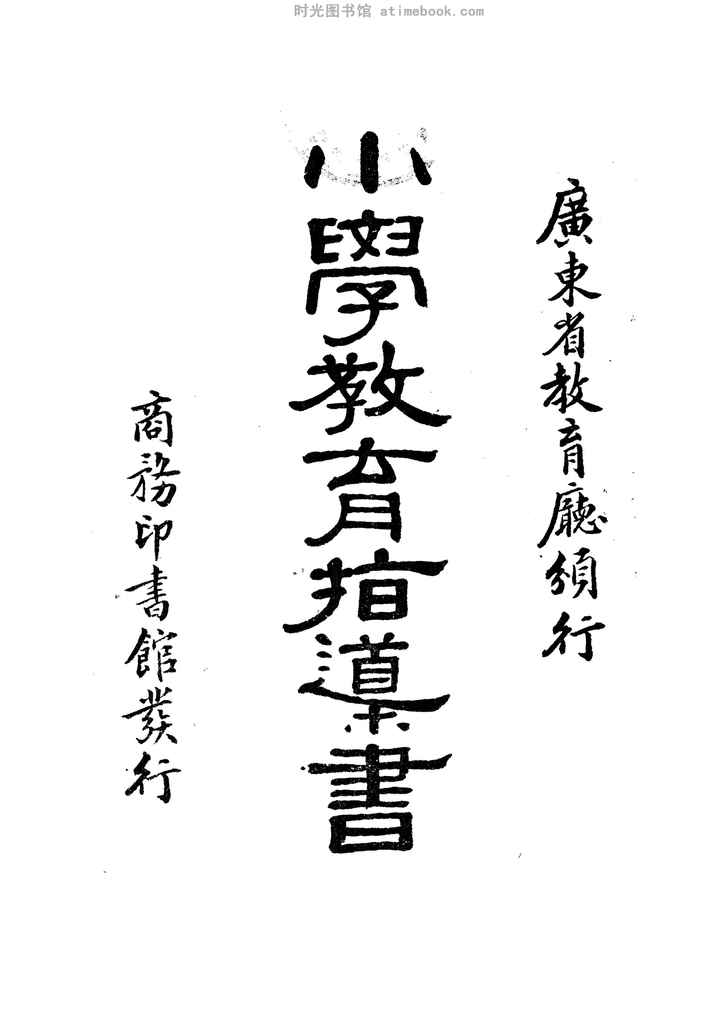 时光图书馆 atimebook.com
廣東省教育廳頒行
小學教育指導書
商務印書館發行